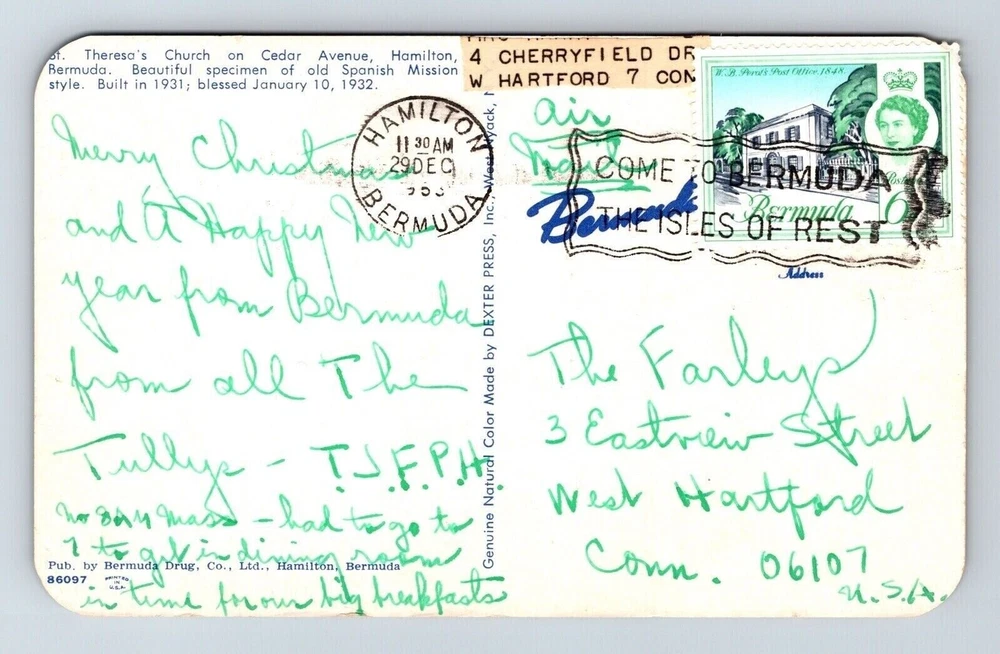 St. Theresa's Church on Cedar Avenue, Hamilton,
Bermuda. Beautiful specimen of old Spanish Mission
style. Built in 1931; blessed January 10, 1932.
4 CHERRYFIELD DR
W HARTFORD 7 CON
W. B. Perot's Post Office, 1848
Bermuda
HAMILTON
11 30 AM
29 DEC
BERMUDA
COME TO BERMUDA
THE ISLES OF REST
air
Mail
Bermuda
Address
Merry Christmas
and A Happy New
year from Bermuda
from all The
Tullys - T.J.F.P.H.
No 8 or 9 Mass - had to go to
7 to get in dining room
in time for our big breakfasts
Pub. by Bermuda Drug, Co., Ltd., Hamilton, Bermuda
86097
PRINTED
IN
U.S.A.
Genuine Natural Color Made by DEXTER PRESS, Inc., West Nyack, N
The Farleys
3 Eastview Street
West Hartford
Conn. 06107
U.S.A.